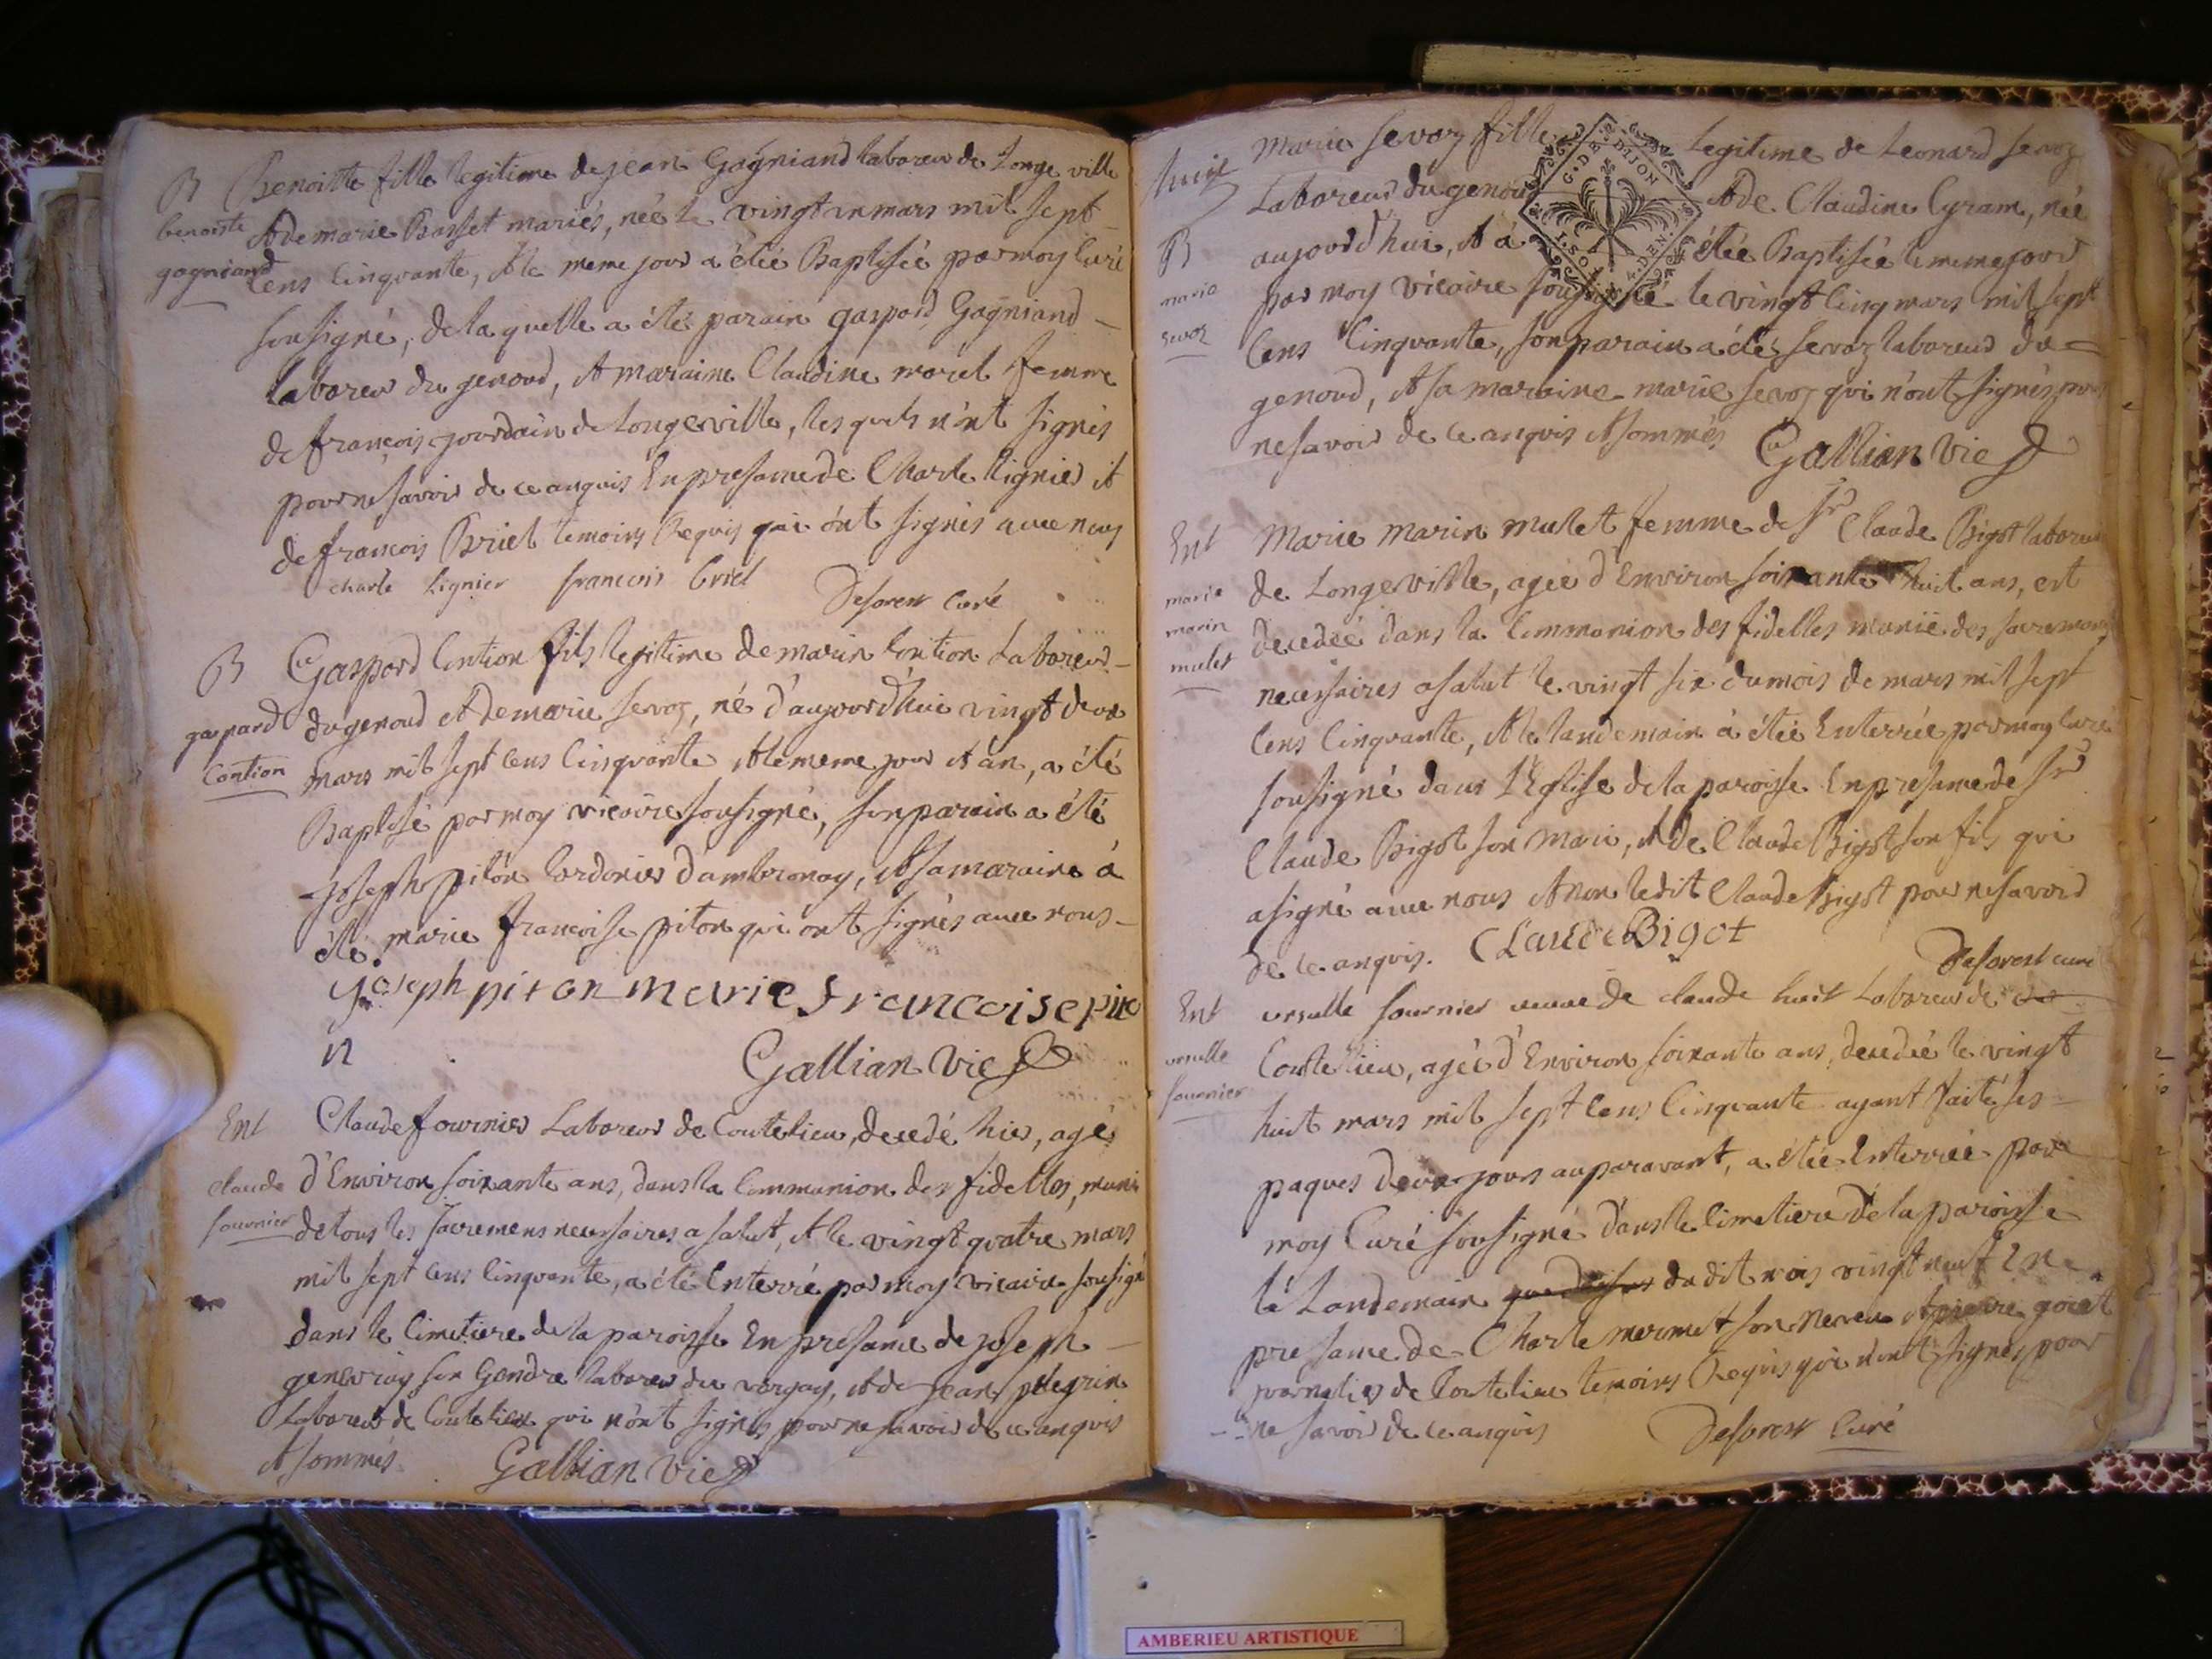 B Benoitte fille legitime de jean Gagniand laboreur de Longe ville
benoitte & de marie Basset mariés, née le vingt un mars mil sept
gagniand cens Cinquante, & le meme jour a étée Baptisée par moy Curé
sousigné, de la quelle a été parain gaspard Gagniand
laboreur du genoud, & maraine Claudine morel femme
de françois jourdain de Longeville, les quels n'ont signés
pour ne savoir de ce anquis En presance de Charle Lignier &
de françois Briel temoins Requis qui ont signés avec nous
charle Lignier francois briel Deforest Curé
B Gaspard Contion fils legitime de marin Contion Laboreur
gaspard du genoud & de marie sevoz, né d'aujourd'hui vingt deux
Contion mars mil sept cens Cinquante & le meme jour & an, a été
Baptisé par moy vicaire sousigné, son parain a été
joseph piton Cordonier d'ambronay, & sa maraine à
été marie francoise piton qui ont signés avec nous
joseph piton marie francoise pito
n
Gallian vic
Ent Claude fournier Laboreur de Coutelieu, decedé hier, agés
claude d'Environ soixante ans, dans la Communion des fidelles, muni
fournier de tous les sacremens necessaires a salut, & le vingt quatre mars
mil sept cens Cinquante, a été Enterré par moy vicaire sousigné
dans le Cimetiere de la paroisse En presance de joseph
son Gendre laboreur du & de jean pelegrin
Laboreur de Coutelieu qui n'ont signés pour ne savoir de ce anquis
& sommés. Gallian vic
huit Marie sevoz fille legitime de Leonard sevoz
Laboreur du genoud & de Claudine Cyram, née
B aujourd'hui, & à étée Baptisée le meme jour
marie par moy vicaire sousigné le vingt Cinq mars mil sept
sevoz Cens Cinquante, son parain a été sevoz laboreur du
genoud, & sa maraine marie sevoz qui n'ont signés pour
ne savoir de ce anquis & sommés Gallian vic
G. DE DIJON
Ent Marie marin mulet femme de Sr Claude Bigot laboreur
marie de Longeville, agée d'Environ soixante huit ans, est
marin decedée dans la Communion des fidelles muniè des sacremens
mulet necessaires a salut le vingt six du mois de mars mil sept
Cens Cinquante, & le landemain à étée Enterrée par moy Curé
sousigné dans l'Eglise de la paroisse En presance de Sr
Claude Bigot son mari, & de Claude Bigot son fils qui
a signé avec nous & non ledit Claude Bigot pour ne savoir
de ce anquis. Claude Bigot
Deforest curé
Ent ursulle fournier veuve de claude huit Laboreur de
ursulle Coutelieu, agée d'Environ soixante ans, decedée le vingt
fournier huit mars mil sept Cens Cinquante ayant faité ses
paques deux jours auparavant, a étée Enterrée par
moy Curé sousigné dans le Cimetiere de la paroisse
le Landemain dudit mois vingt neuf En
presance de Charle mermet son neveu & pierre goiet
journalier de Coutelieu temoins Requis qui n'ont signés pour
ne savoir de ce anquis Deforest Curé
AMBERIEU ARTISTIQUE